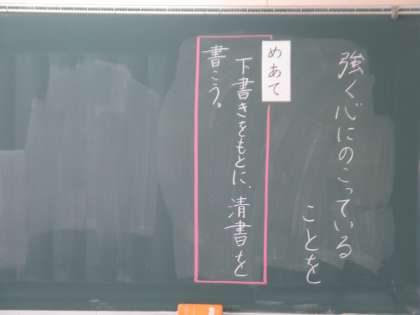 強く心にのこっている
ことを
めあて
下書きをもとに、清書を
書こう。